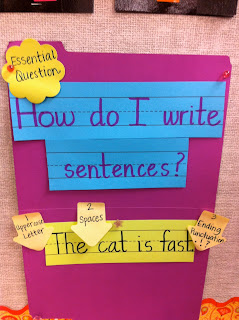 Essential
Question
How do I write
sentences?
1
Uppercase
Letter
2
Spaces
3
Ending
Punctuation
. ! ?
The cat is fast.